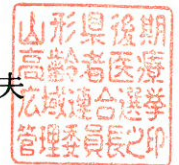 山形県後期
高齢者医療
夫
広域連合選挙
管理委員長之印